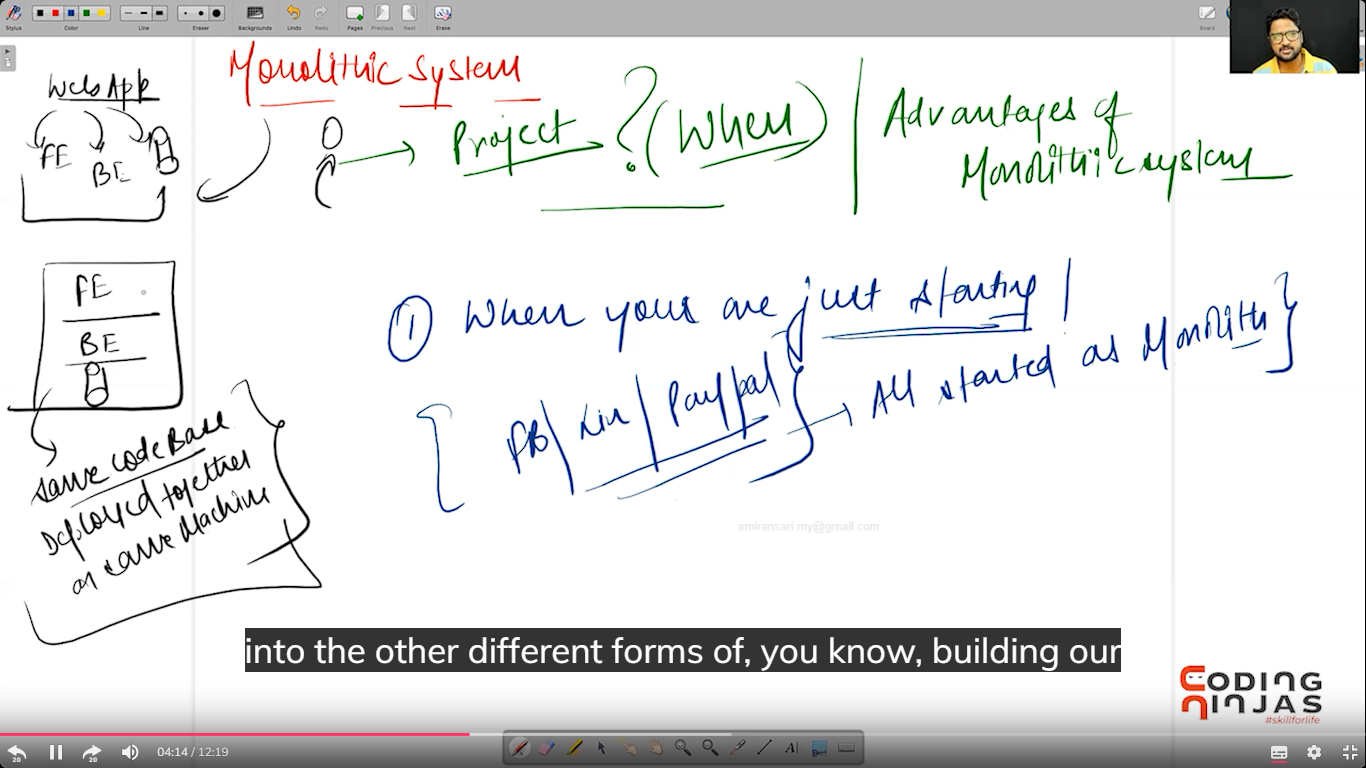 Stylus
Color
Line
Eraser
Backgrounds
Undo
Redo
Pages
Previous
Next
Erase
Board
Web App
FE
BE
Monolithic System
Project ? (When)
Advantages of
Monolithic system
FE
BE
Same Code Base
Deployed together
on same Machine
① When yours are just starting
FB / Lin / Paypal → All started as Monolith
amiransari.my@gmail.com
into the other different forms of, you know, building our
CODING
NINJAS
#skillforlife
20
20
04:14 / 12:19
A